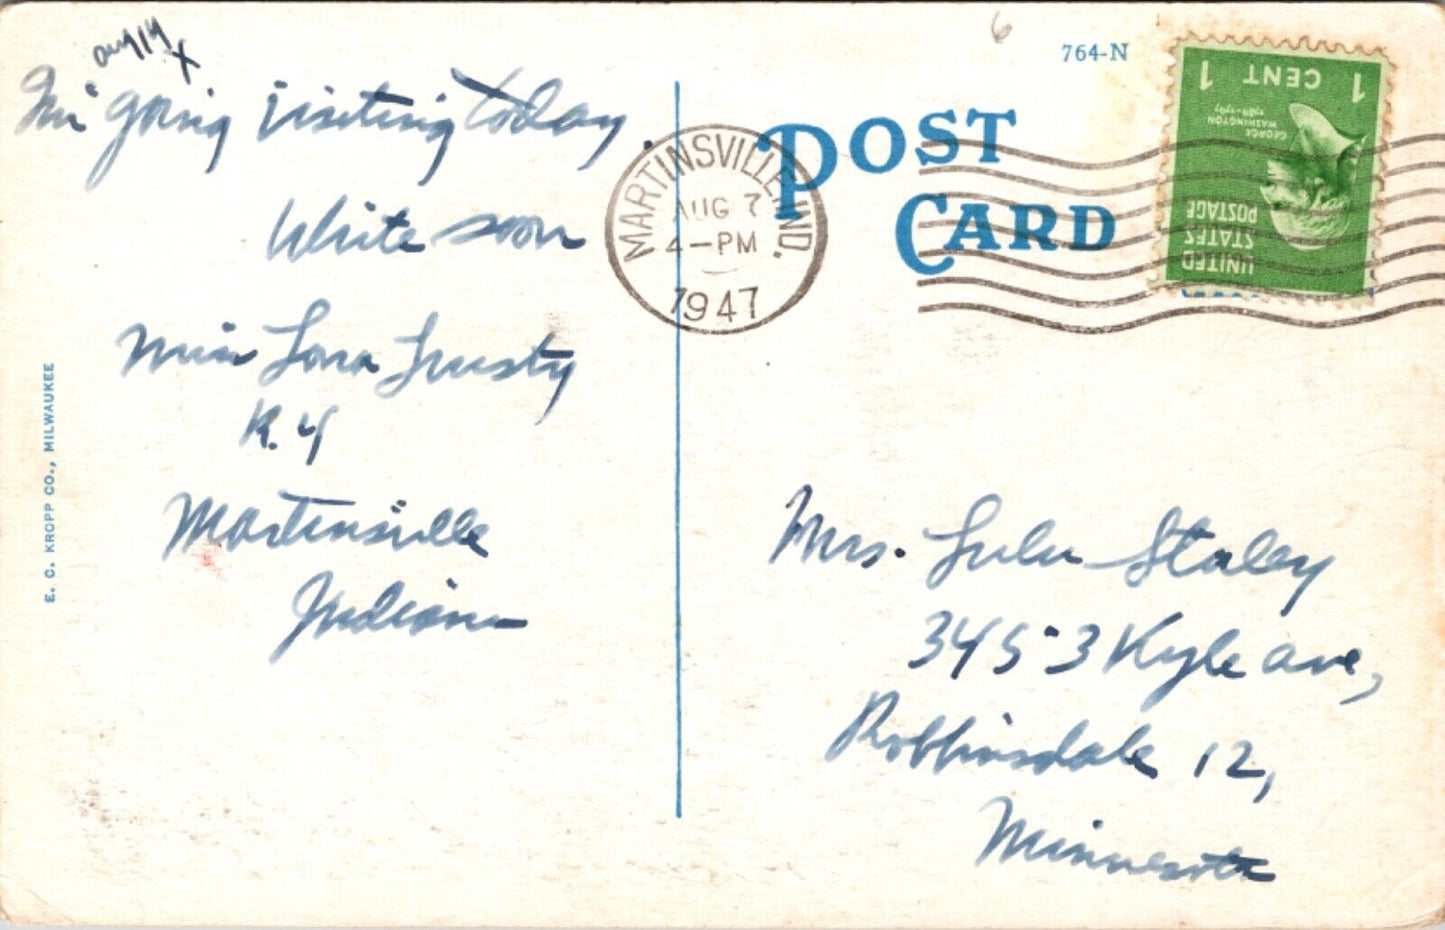 Aug 14
X
I'm going visiting today.
Write soon
Miss Lora Trusty
R. 4
Martinsville
Indiana
E. C. KROPP CO., MILWAUKEE
6
764-N
POST
CARD
MARTINSVILLE, IND.
AUG 7
4-PM
1947
1 CENT 1
GEORGE
WASHINGTON
1789-1797
UNITED
STATES
POSTAGE
Mrs. Lulu Staley
3453 Kyle Ave,
Robbinsdale 12,
Minnesota